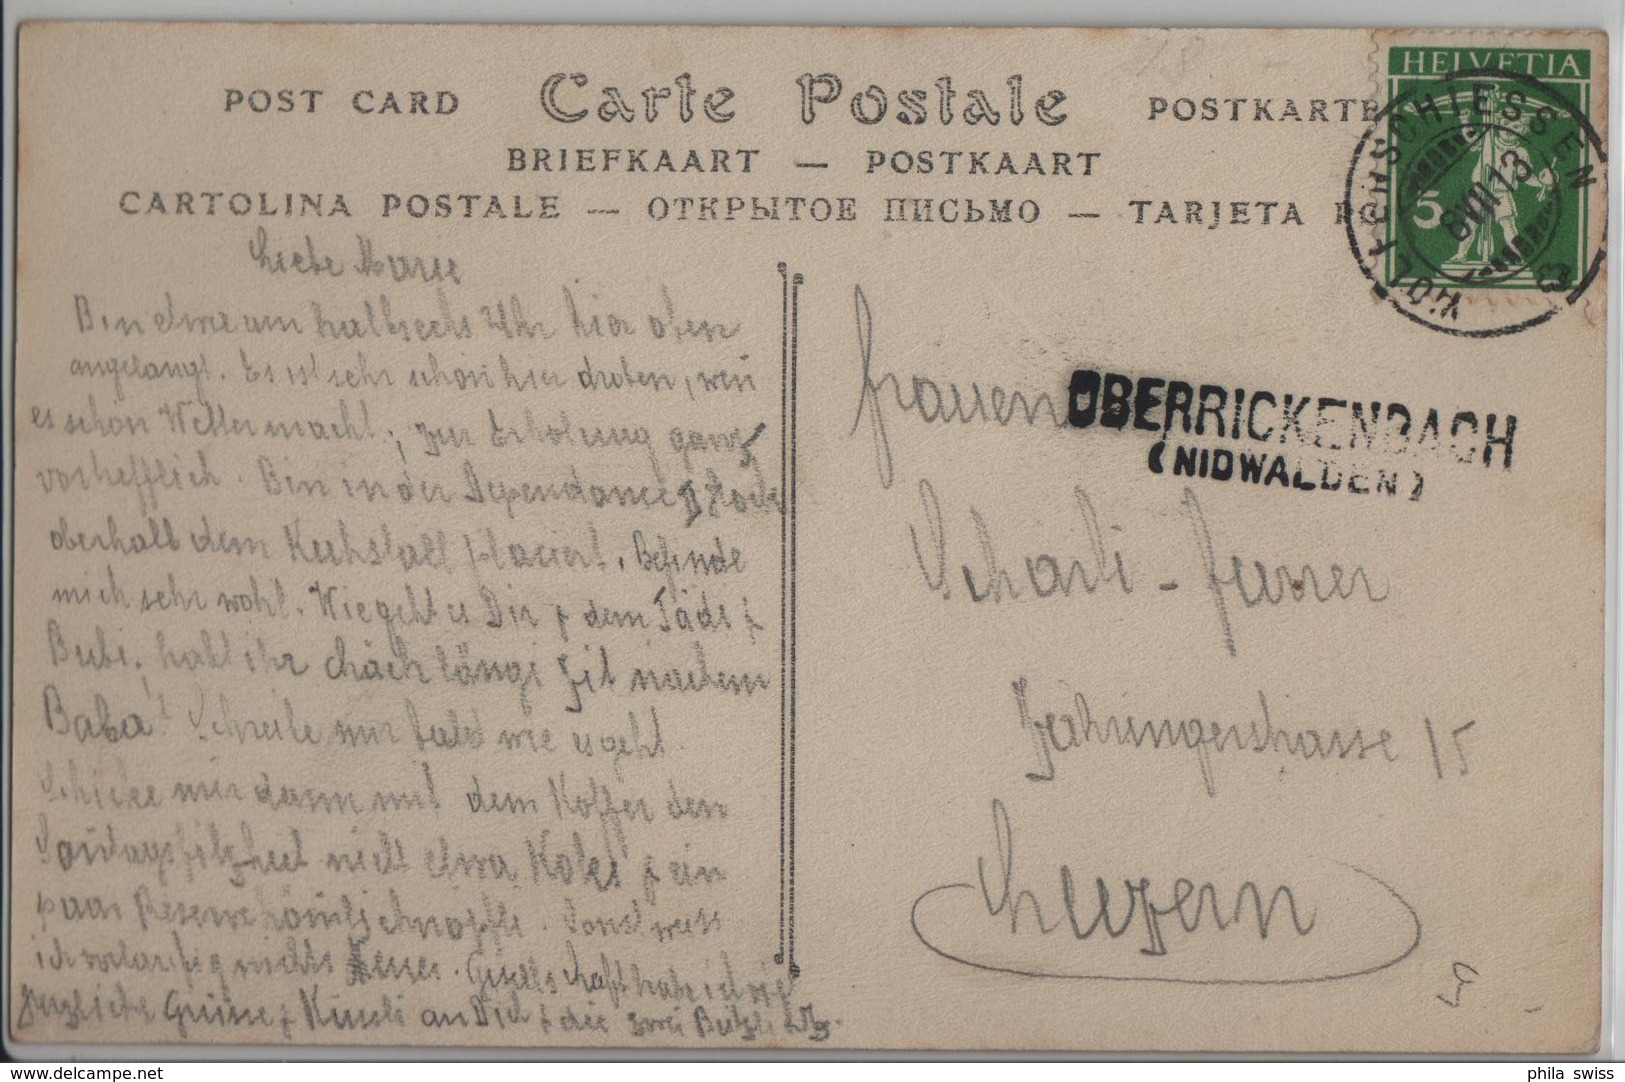 POST CARD Carte Postale POSTKARTE
BRIEFKAART — POSTKAART
CARTOLINA POSTALE — ОТКРЫТОЕ ПИСЬМО — TARJETA PO
HELVETIA
5
WOLFENSCHIESSEN
8 VII 13
OBERRICKENBACH
(NIDWALDEN)
Liebe Marie
Bin etwa um halbsechs Uhr hier oben
angelangt. Es ist sehr schön hier droben, wen
es schön Wetter macht, zur Erholung ganz
vortrefflich. Bin in der Dependance II Stock
oberhalb dem Kuhstall placiert. Befinde
mich sehr wohl. Wie geht es Dir & dem Tädi &
Bubi, hat ihr längi Zit nachem
Baba! Schreibe mir bald wie es geht.
Schicke mir dann mit dem Koffer den
nicht etwa & ein
paar. Sonst weiss
ich vorläufig nichts Neues. Gesellschaft habe ich
herzliche Grüsse & Küssli an Dich & die zwei Bützli
Frauen
Schärli-Furrer
Zähringerstrasse 15
Luzern
www.delcampe.net
phila_swiss